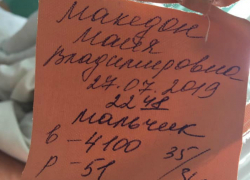 Македон
Майя
Владимировна
27.07.2019
22 48
мальчик
в - 4100
р - 51
35/